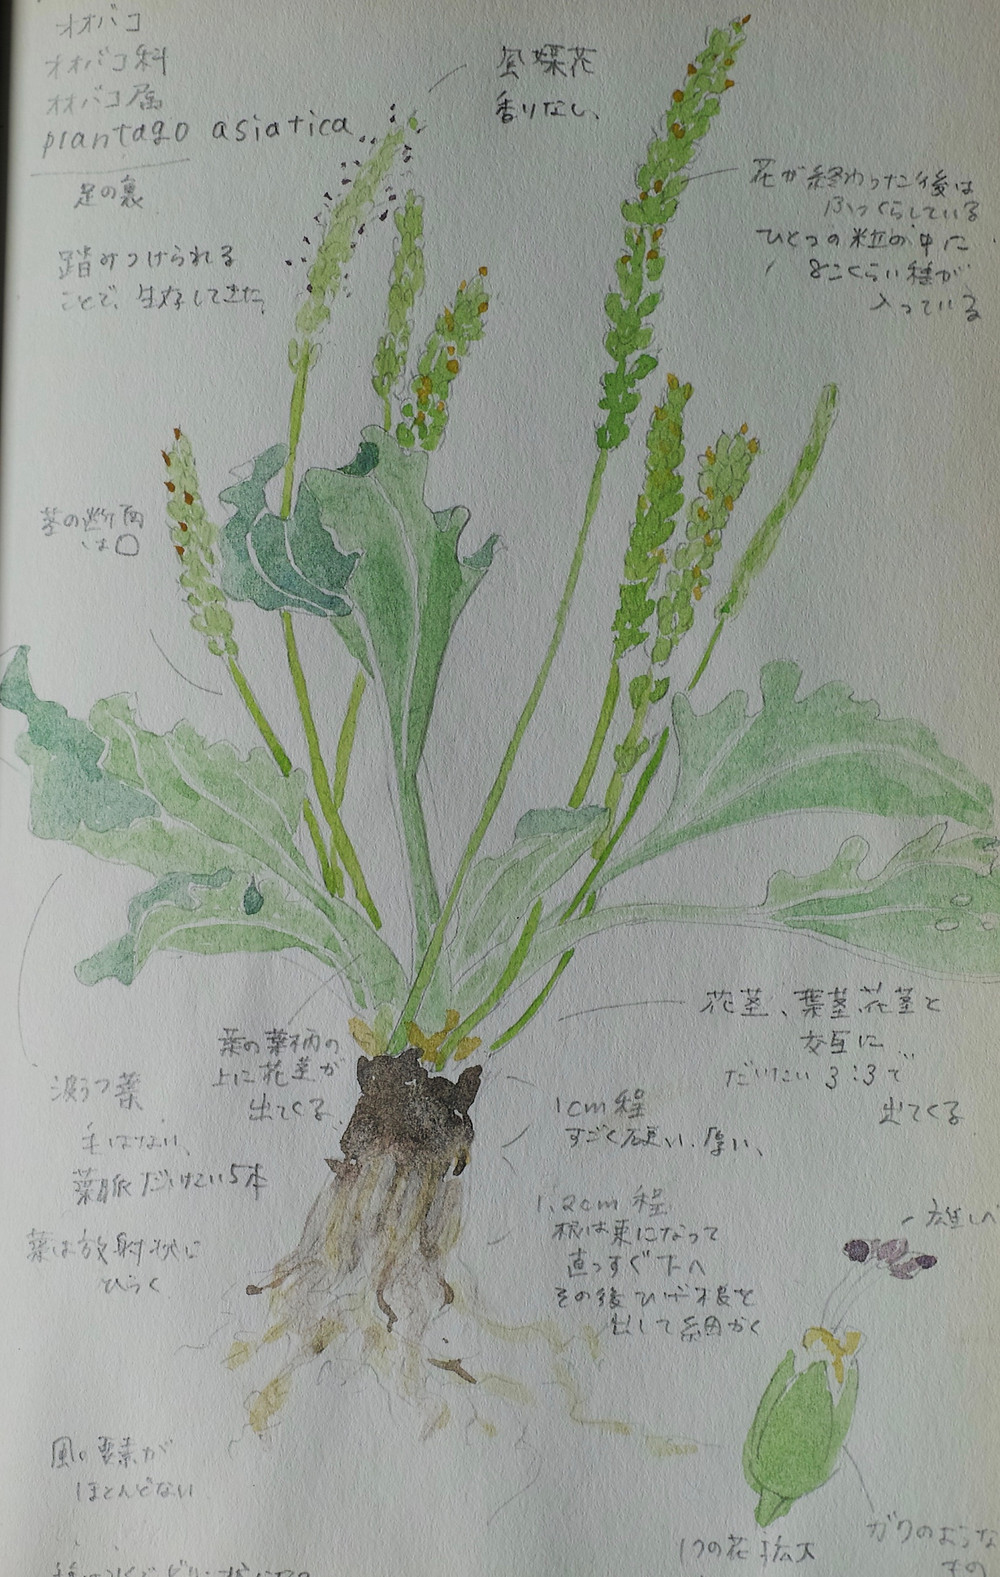 オオバコ
オオバコ科
オオバコ属
plantago asiatica
足の裏
踏みつけられる
ことで、生存してきた
風媒花
香りなし、
花が終わった後は
ふっくらしている
ひとつの粒の中に
8こくらい種が
入っている
茎の断面
は〇
葉の葉柄の
上に花茎が
出てくる
花茎、葉茎、花茎と
交互に
だいたい 3:3で
出てくる
波うつ葉
毛はない、
葉脈だいたい5本
葉は放射状に
ひらく
1cm程
すごく硬い、厚い、
1.2cm程
根は束になって
直っすぐ下へ
その後ひげ根を
出して細かく
雄しべ
風の要素が
ほとんどない
1つの花拡大
ガクのような
もの